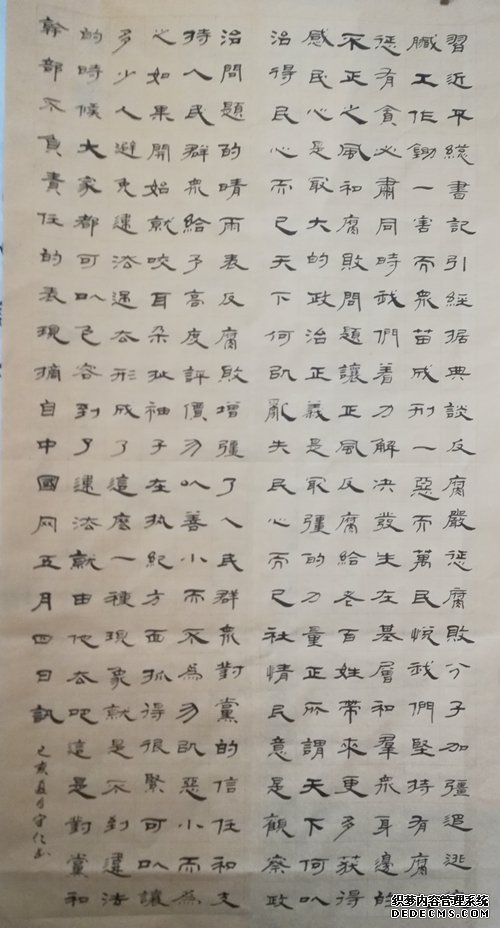 習近平總書記引經据典談反腐嚴懲腐敗分子加彊追逃
贓工作鋤一害而衆苗成刑一惡而萬民悅我們堅持有腐
惩有貪必肅同時我們着力解决發生在基層和羣衆身邊的
不正之風和腐敗問題讓正風反腐給老百姓帶來更多获得
感民心是最大的政治正義是最彊的力量正所謂天下何以
治得民心而已天下何以亂失民心而已社情民意是觀察政
治問題的晴雨表反腐敗增彊了人民群衆對黨的信任和支
持人民群衆給予高度評價勿以善小而不為勿以惡小而為
之如果開始就咬耳朵扯袖子在执紀方面抓得很緊可以讓
多少人避免違法過去形成了這麼一種現象就是不到違法
的時候大家都可以包容到了違法就由他去吧這是對黨和
幹部不負責任的表現摘自中國网五月四日訊
己亥夏月
织梦内容管理系统
DEDECMS.COM